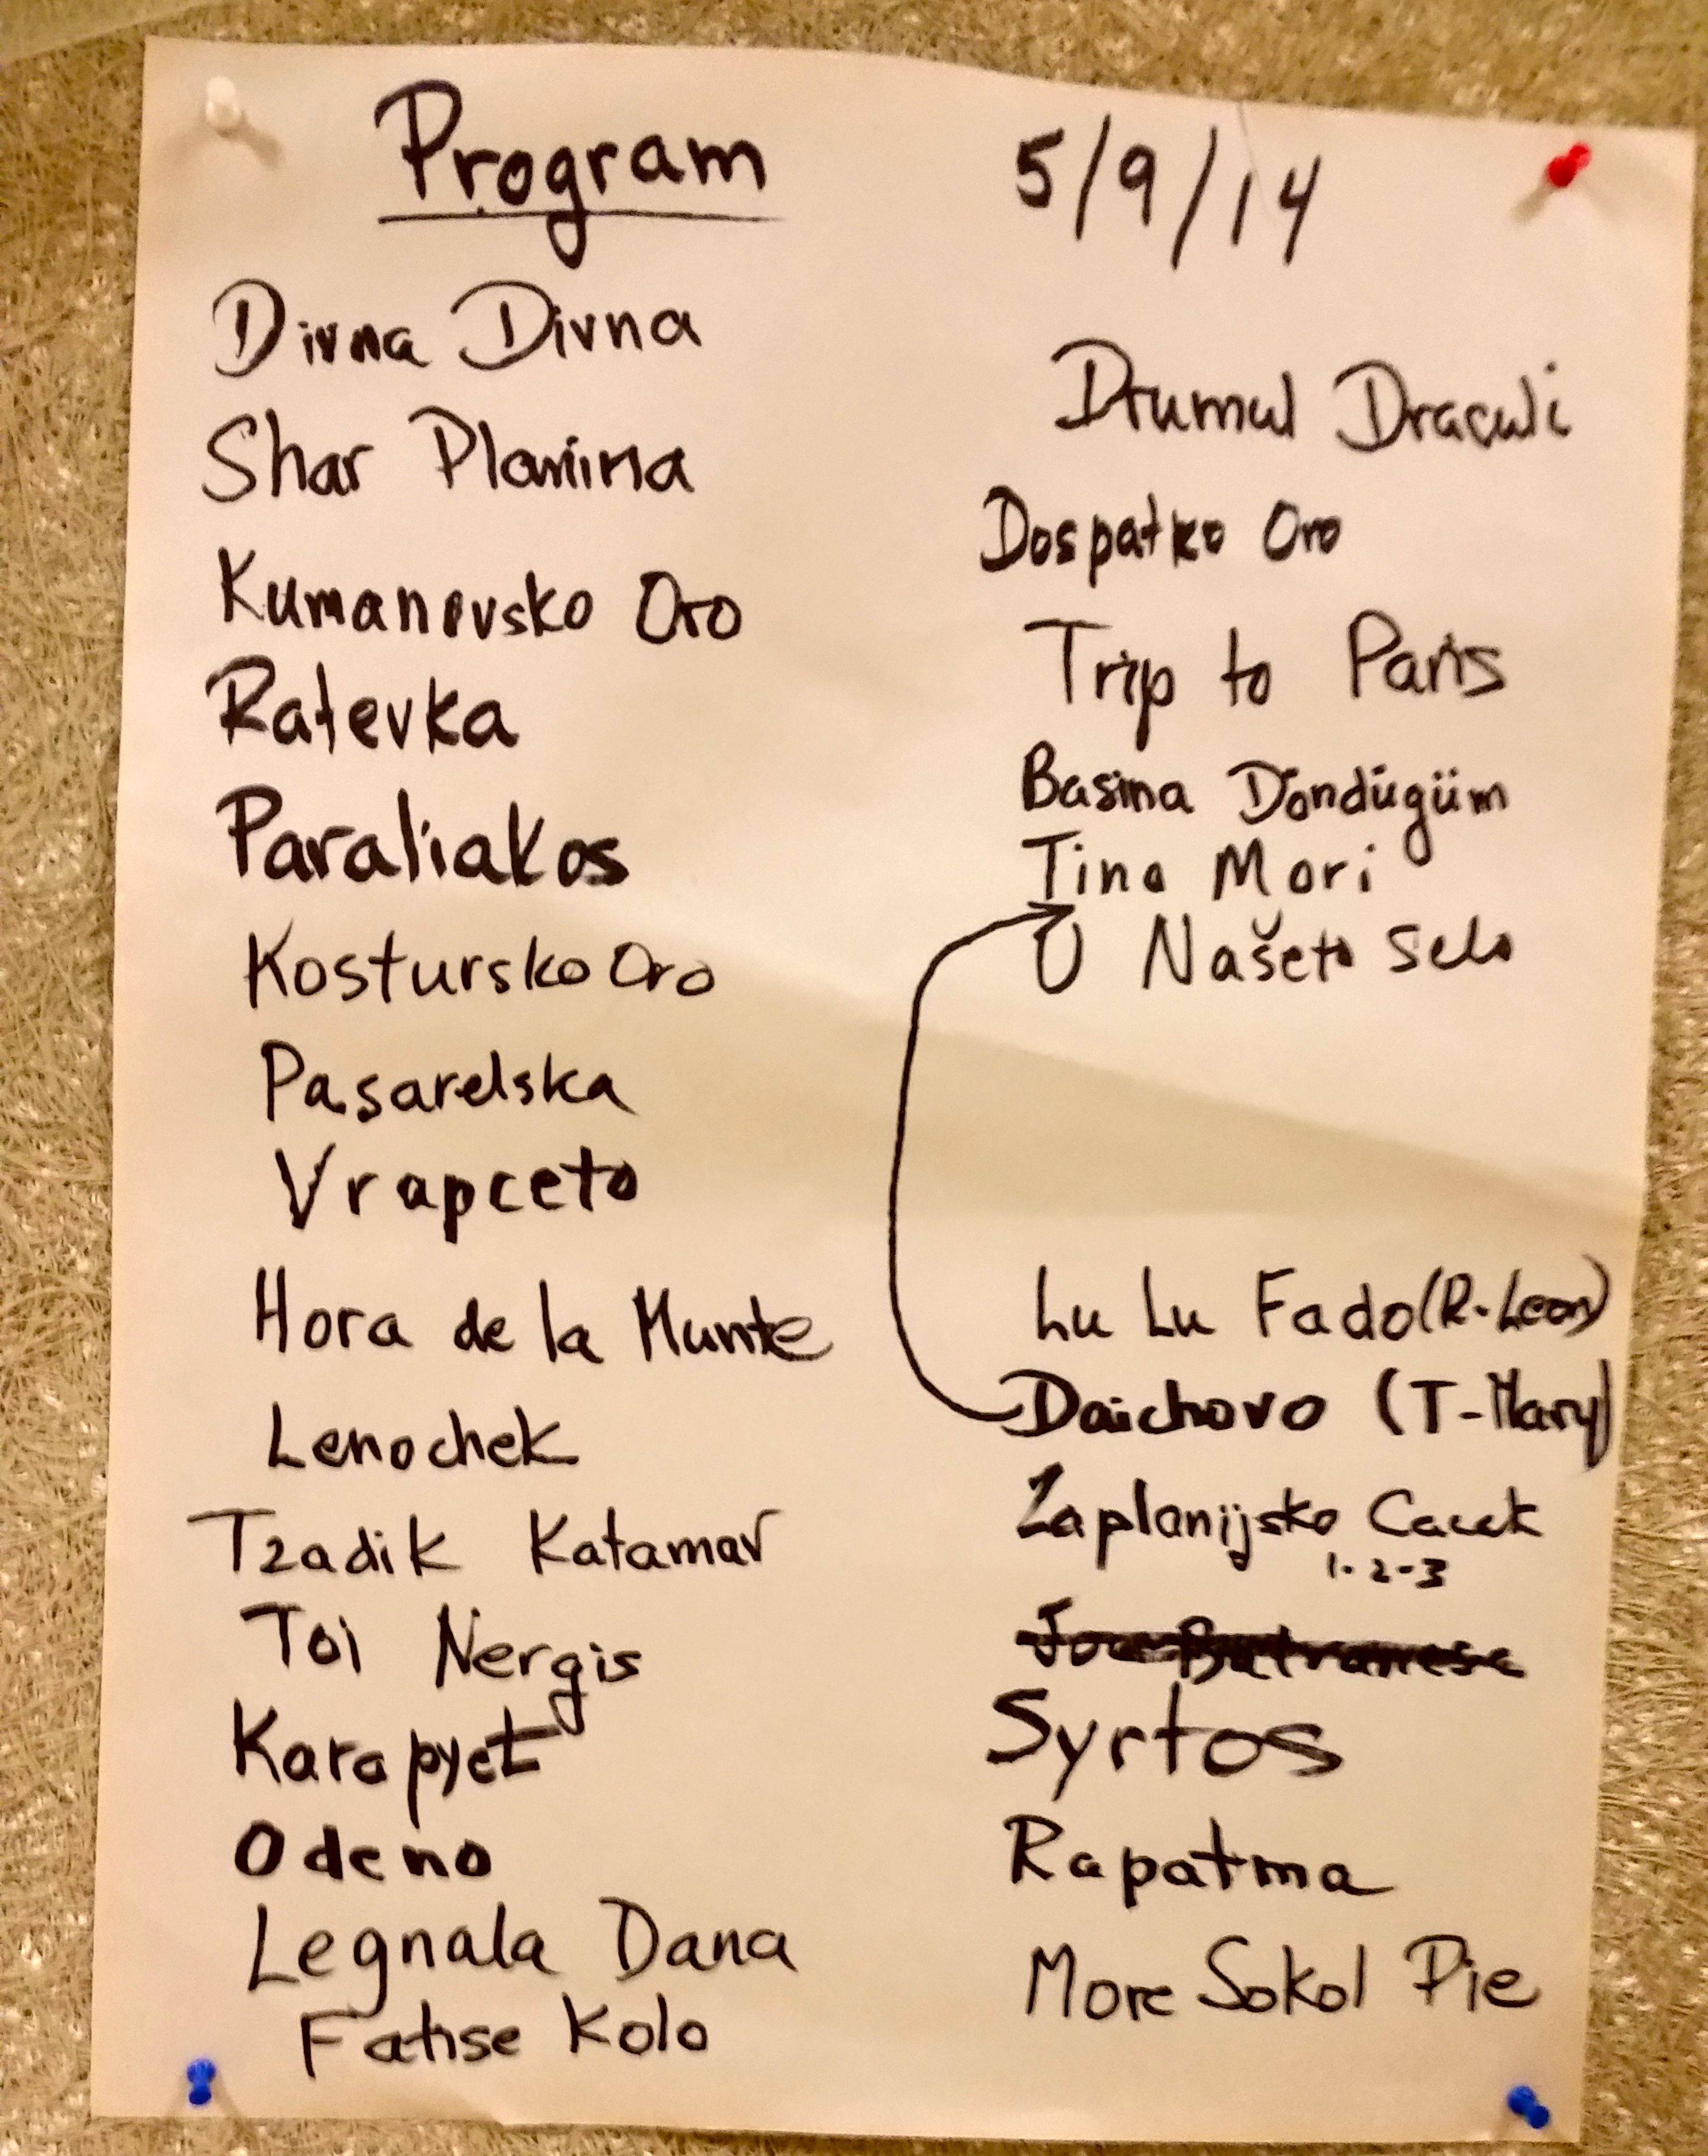 Program
5/9/14
Divna Divna
Shar Planina
Kumanovsko Oro
Ratevka
Paraliakos
Kostursko Oro
Pasarelska
Vrapceto
Hora de la Munte
Lenochek
Tzadik Katamar
Toi Nergis
Karapyet
Odeno
Legnala Dana
Fatise Kolo
Drumul Draculi
Dospatko Oro
Trip to Paris
Basina Döndügüm
Tino Mori
U Našeto Selo
Lu Lu Fado (R-Leon)
Daichovo (T-Mary)
Zaplanijsko Cacek
1-2-3
Syrtos
Rapatma
More Sokol Pie